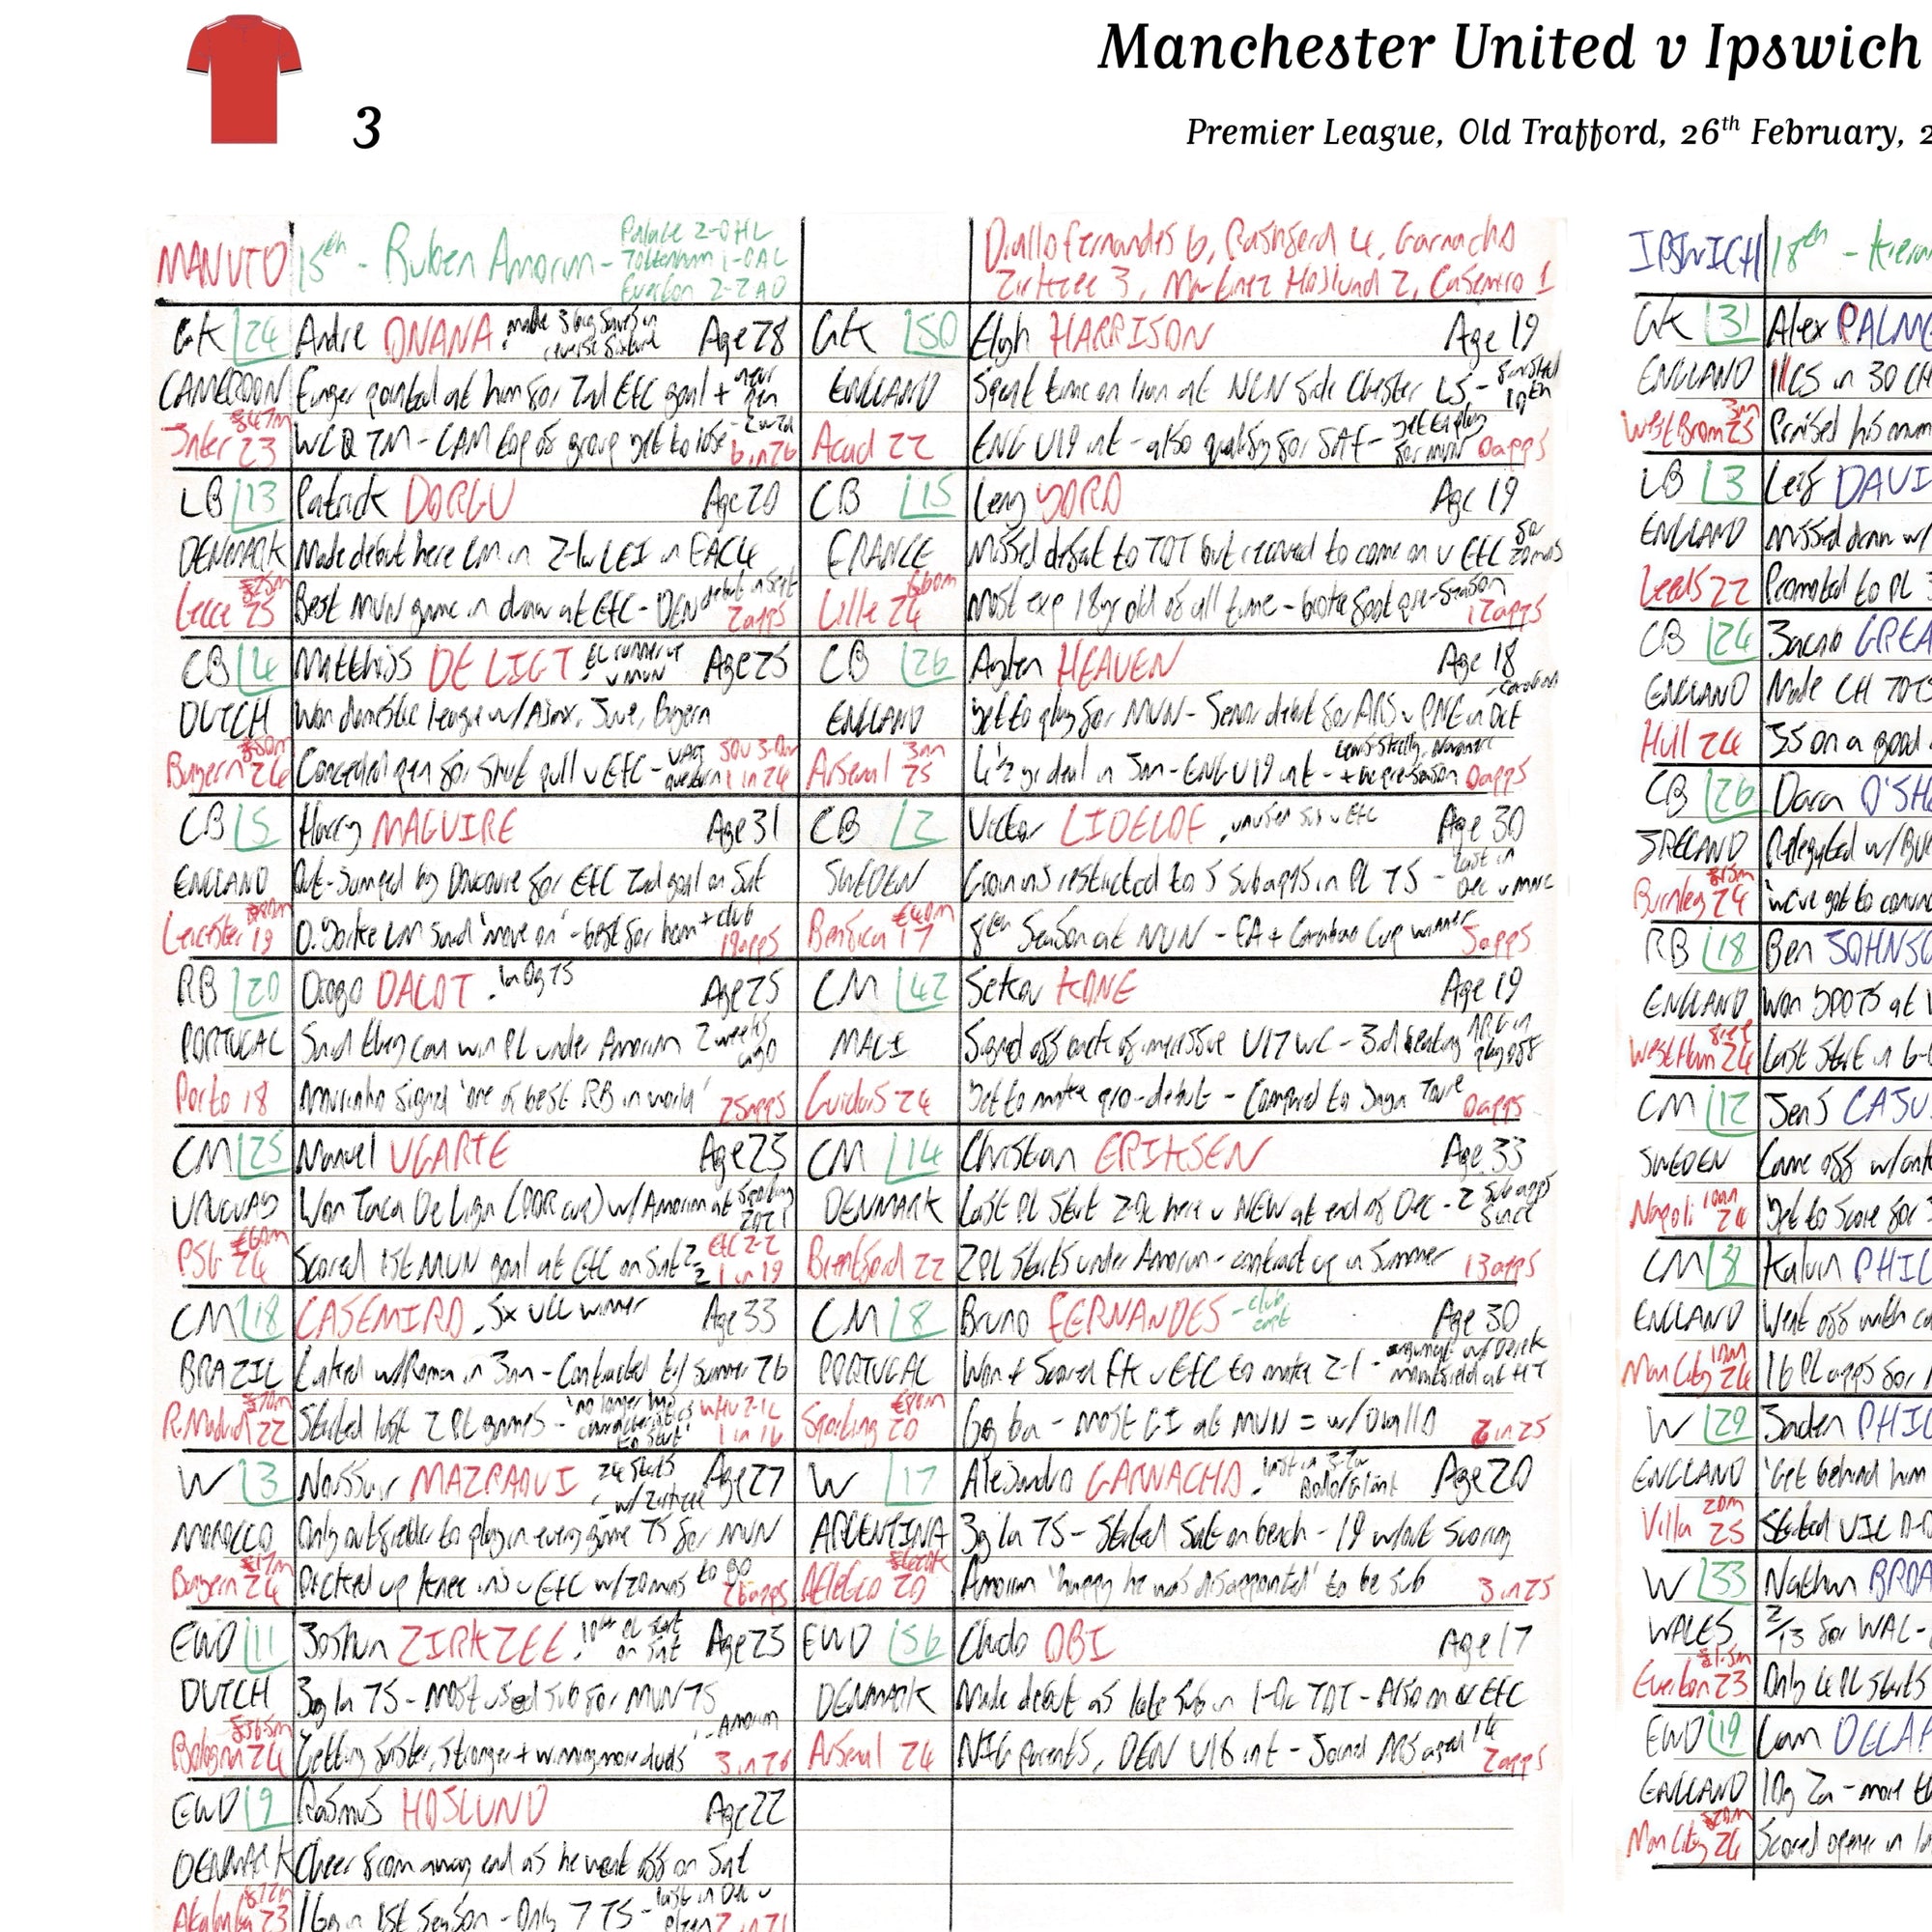 Manchester United v Ipswich
3
Premier League, Old Trafford, 26th February, 2
MAN UTD 15th - Ruben Amorim - Palace 2-0 HL
Tottenham 1-0 AL
Everton 2-2 AD
Diallo Fernandes 6, Rashford 4, Garnacho
Zirkzee 3, Martinez Hojlund 2, Casemiro 1
GK 24 Andre ONANA . made 3 big saves in
reverse fixture Age 28
CAMEROON Finger pointed at him for 2nd EFC goal +
£47m
Inter 23 WCQ TM - CAM top of group yet to lose 6 in 26
LB 13 Patrick DORGU Age 20
DENMARK Made debut here LM in 2-1w LEI in FAC4
£25m
Lecce 25 Best MUN game in draw at EFC - DEN debut in Sept 2apps
CB 4 Matthijs DE LIGT . EL runner up
v MUN Age 25
DUTCH Won domestic league w/ Ajax, Juve, Bayern
Bayern 24 Conceded pen for shirt pull v EFC - VAR
overturn SOU 3-0w
1 in 24
CB 5 Harry MAGUIRE Age 31
ENGLAND Out-jumped by Doucoure for EFC 2nd goal on Sat
£80m
Leicester 19 D. Yorke LM said 'move on' - best for him + club 19apps
RB 20 Diogo DALOT . 1a 0g TS Age 25
PORTUGAL Said they can win PL under Amorim 2 weeks
ago
Porto 18 Mourinho signed 'one of best RB in world' 25apps
CM 25 Manuel UGARTE Age 23
URUGUAY Won Taca De Liga (POR cup) w/ Amorim at Sporting
2021
PSG 24 Scored 1st MUN goal at EFC on Sat EFC 2-2
1 in 19
CM 18 CASEMIRO . 5x UCL winner Age 33
BRAZIL Linked w/ Roma in Jan - Contracted til Summer 26
£70m
R.Madrid 22 Started last 2 PL games - 'no longer has
characteristics
to start' WHU 2-1L
1 in 16
W 3 Noussair MAZRAOUI 24 starts
- w/ Zirkzee Age 27
MOROCCO Only outfielder to play in every game TS for MUN
£17m
Bayern 24 Picked up knee inj v EFC w/ 20mins to go 26apps
FWD 11 Joshua ZIRKZEE . 10th PL start
on Sat Age 23
DUTCH 3g 1a TS - Most used sub for MUN TS
£36.5m
Bologna 24 'Getting faster, stronger + winning more duels' - Amorim 3 in 26
FWD 9 Rasmus HOJLUND Age 22
DENMARK Cheer from away end as he went off on Sat
£72m
Atalanta 23 16g in 1st Season - Only 7 TS - last in Dec v
GK 50 Elyh HARRISON Age 19
ENGLAND Spent time on loan at NLN side Chester LS -
finished
10th
Acad 22 ENG U19 int - also qualify for SAF - yet to play
for MUN 0apps
CB 15 Leny YORO Age 19
FRANCE Missed defeat to TOT but recovered to come on v EFC for
20mins
£60m
Lille 24 Most exp 18yr old of all time - broke foot pre-season 12apps
CB 26 Ayden HEAVEN Age 18
ENGLAND Yet to play for MUN - Senior debut for ARS v PNE in Oct - Carabao
Arsenal 25 4 1/2 yr deal in Jan - ENG U19 int - 0apps
CB 2 Victor LINDELOF . unused sub v EFC Age 30
SWEDEN Groin inj restricted to 5 sub apps in PL TS - last in
Dec v MNC
£40m
Benfica 17 8th Season at MUN - FA + Carabao Cup winner 5apps
CM 42 Sekou KONE Age 19
MALI Signed off back of impressive U17 WC - 3rd beating ARG in
play off
Guidars 24 Yet to make pro-debut - Compared to Yaya Toure 0apps
CM 14 Christian ERIKSEN Age 33
DENMARK Last PL start 2-0L here v NEW at end of Dec - 2 sub apps
since
Brentford 22 2PL starts under Amorim - contract up in Summer 13apps
CM 8 Bruno FERNANDES - club
capt Age 30
PORTUGAL Won + Scored FK v EFC to make 2-1 - argument w/ Derek
mansfield at HT
£80m
Sporting 20 6g 6a - most GI at MUN = w/ Diallo 6 in 25
W 17 Alejandro GARNACHO . last in 3-2w
Bodo/Glimt Age 20
ARGENTINA 3g 1a TS - Started Sat on bench - 19 without scoring
Atletico 20 Amorim 'happy he was disappointed' to be sub 3 in 25
FWD 56 Chido OBI Age 17
DENMARK Made debut as late sub in 1-0L TOT - Also on v EFC
Arsenal 24 NIG parents, DEN U18 int - Joined ARS aged 14 2apps
IPSWICH 18th - Kieran
GK 31 Alex PALME
ENGLAND 11CS in 30 CH
3m
West Brom 25 Praised his mum
LB 3 Leif DAVI
ENGLAND Missed draw w/
Leeds 22 Promoted to PL
CB 24 Jacob GREA
ENGLAND Made CH TOTS
Hull 24 35 on a good
CB 26 Dara O'SHE
IRELAND Relegated w/ BUR
£15m
Burnley 24 'We've got to convin
RB 18 Ben JOHNSO
ENGLAND Won YPOTS at W
free
West Ham 24 Last start in 6-0
CM 12 Jens CAJU
SWEDEN Came off w/ ankle
10m
Napoli 24 Yet to score for
CM 8 Kalvin PHIL
ENGLAND Went off with ca
Man City 24 16 PL apps for
W 29 Jaden PHIL
ENGLAND 'Get behind him
20m
Villa 25 Started VIL
W 33 Nathan BROA
WALES 2/13 for WAL -
£1.5m
Everton 23 Only 4 PL starts
FWD 19 Liam DELAP
ENGLAND 10g 2a - more th
£20m
Man City 24 Scored opener in